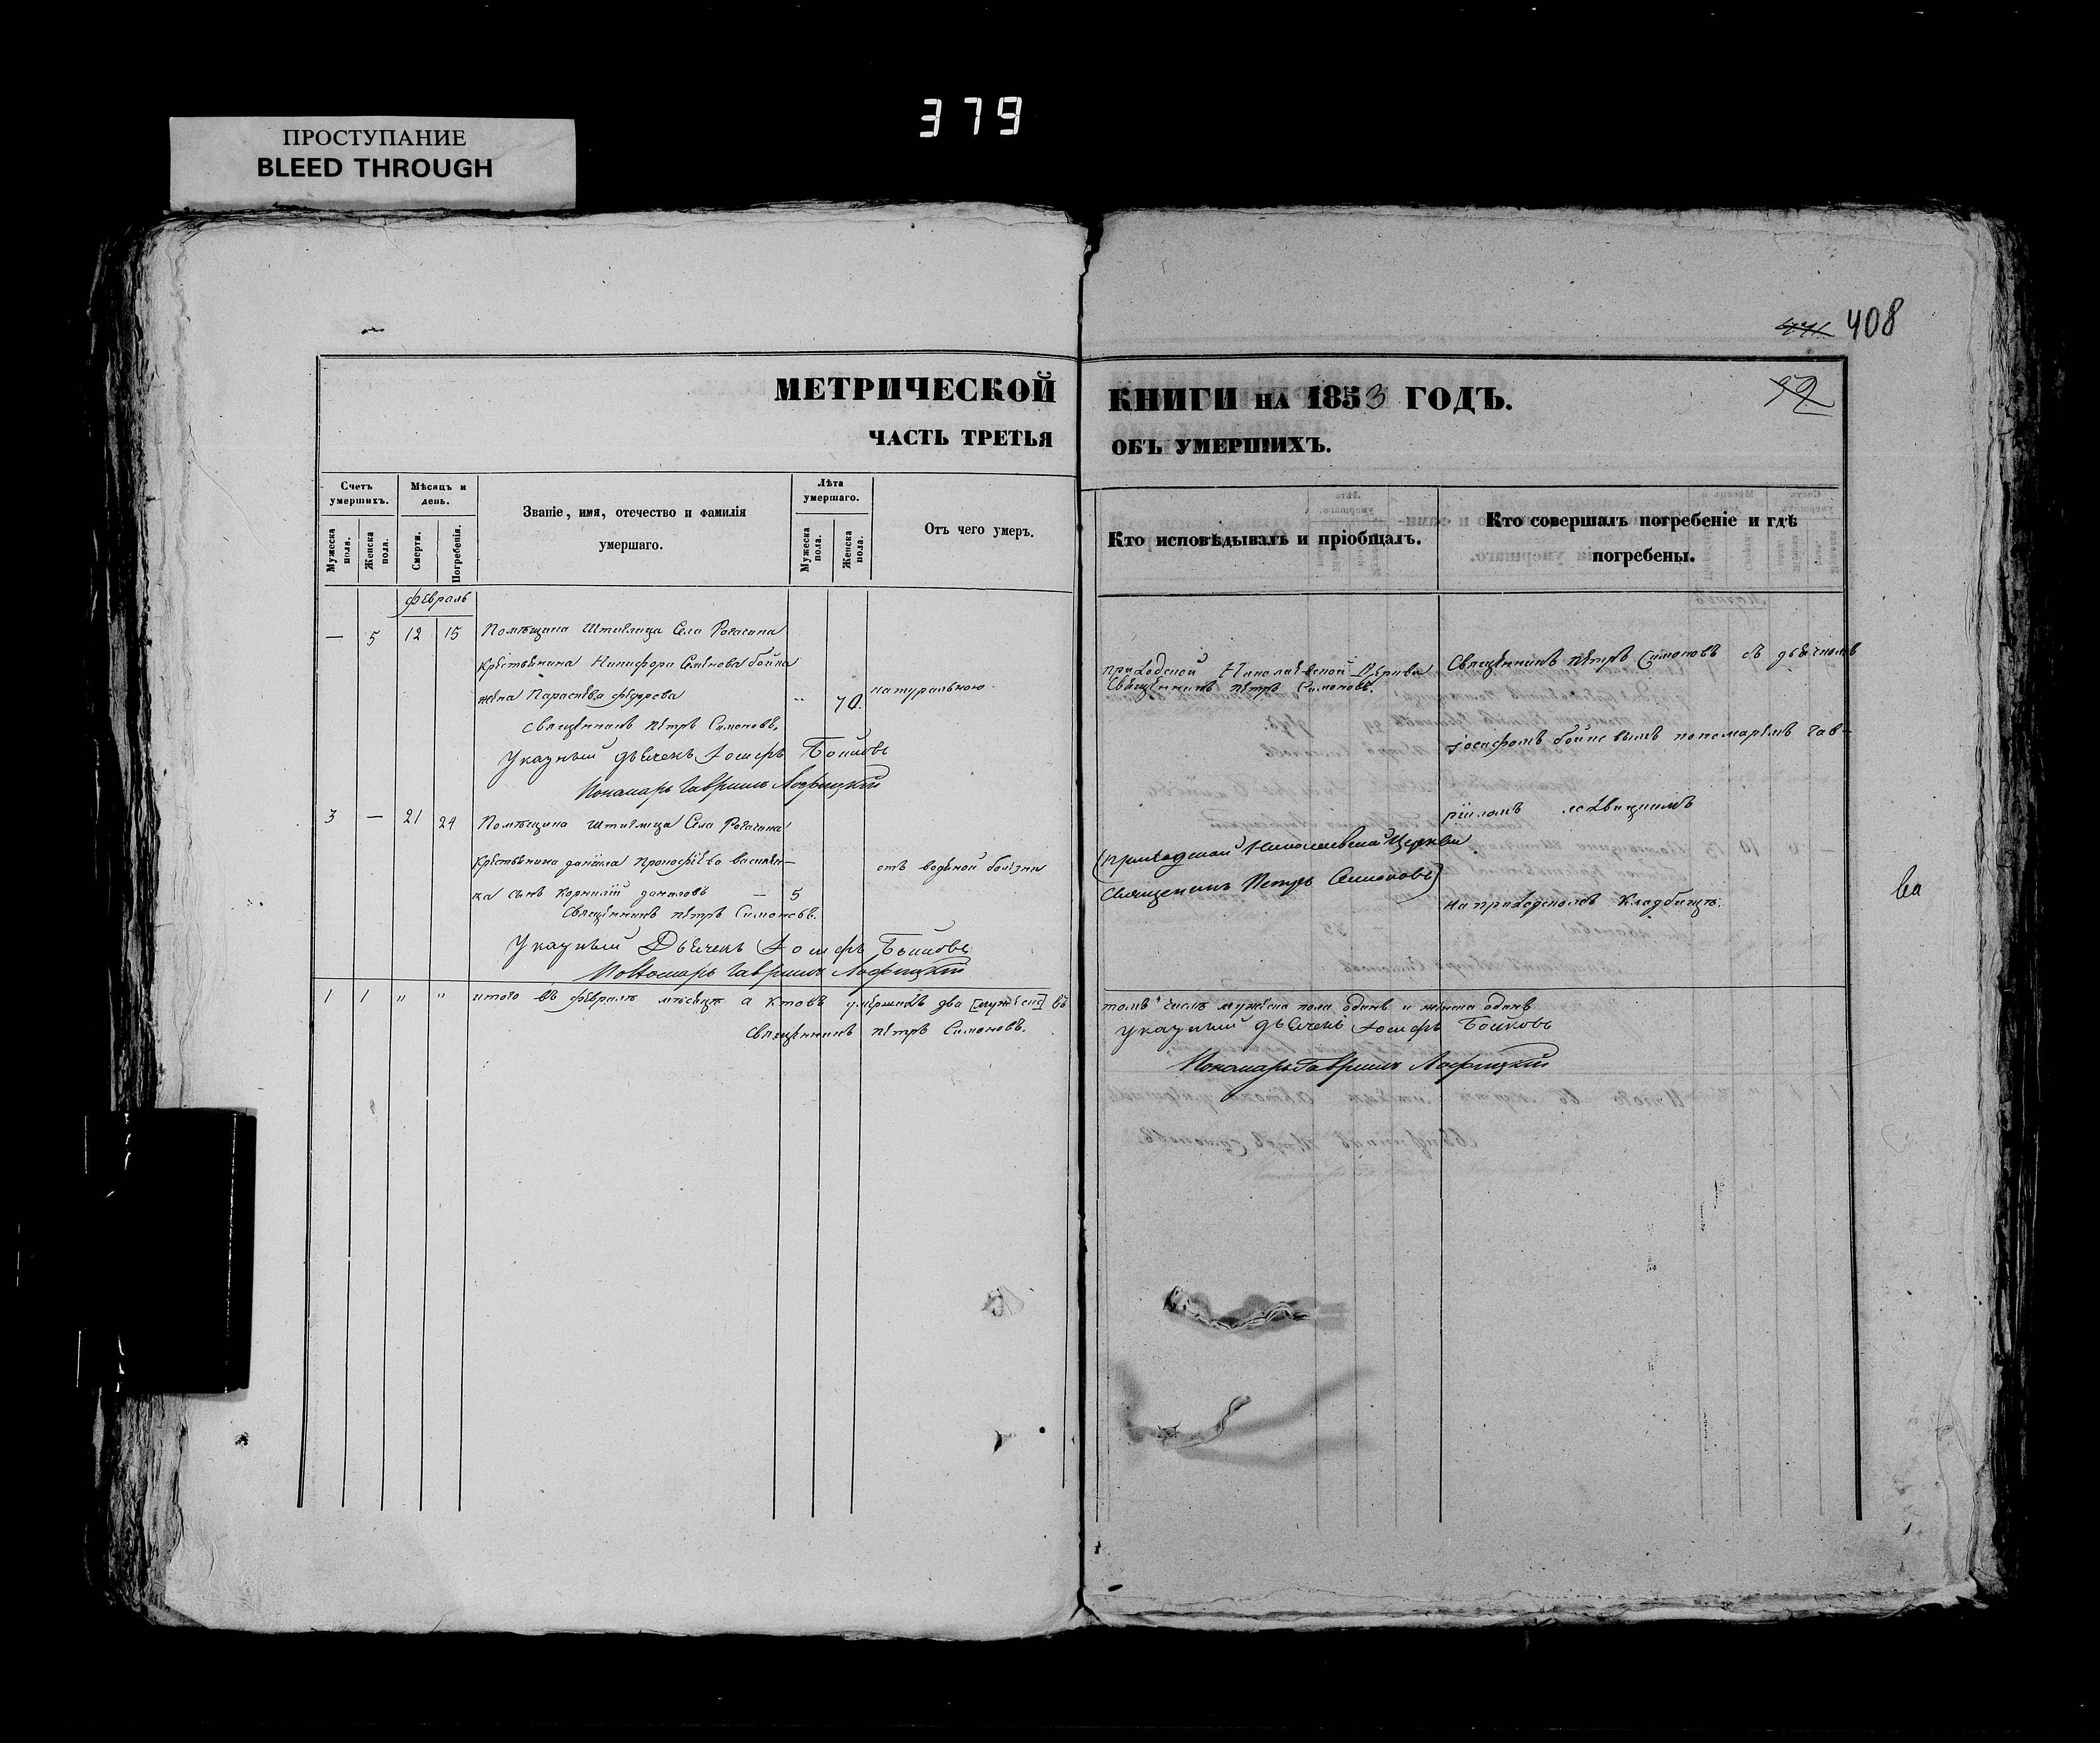 379
ПРОСТУПАНИЕ
BLEED THROUGH
408
МЕТРИЧЕСКОЙ
ЧАСТЬ ТРЕТЬЯ
КНИГИ НА 1853 ГОДЪ.
ОБЪ УМЕРШИХЪ.
Счетъ умершихъ.
Мужеска пола.
Женска пола.
Мѣсяцъ и день.
Смерти.
Погребенія.
Званіе, имя, отечество и фамилія
умершаго.
Лѣта умершаго.
Мужеска пола.
Женска пола.
Отъ чего умеръ.
Кто исповѣдывалъ и пріобщалъ.
Кто совершалъ погребеніе и гдѣ
погребены.
февраль
— 5 12 15 Помѣщика Штиглица Села Рогачика
крестьянина Никифора Семенова бойка
жена Параскева федорова " 70. натуральною
священникъ петръ Симоновъ.
Указный дьячекъ Іосифъ Бойковъ
Пономарь Гавриилъ
приходской Николаевской Церкви
Священникъ петръ Симоновъ.
Священникъ петръ Симоновъ съ дьячкомъ
іосифомъ бойковымъ пономаремъ Гав-
рииломъ
на приходскомъ кладбищѣ.
3 — 21 24 Помѣщика Штиглица Села Рогачика
крестьянина даніила василен-
ка сынъ корнилій даниловъ — 5 отъ водяной болезни
Священникъ петръ Симоновъ.
Указный Дьячекъ Іосифъ Бойковъ
Пономарь Гавриилъ
приходской Николаевской Церкви
священникъ Петръ Симоновъ
1 1 " " итого въ февралѣ мѣсяцѣ умершихъ два въ
Священникъ петръ Симоновъ.
томъ числѣ мужеска пола одинъ и женска одинъ
указный дьячекъ Іосифъ Бойковъ
Пономарь Гавриилъ